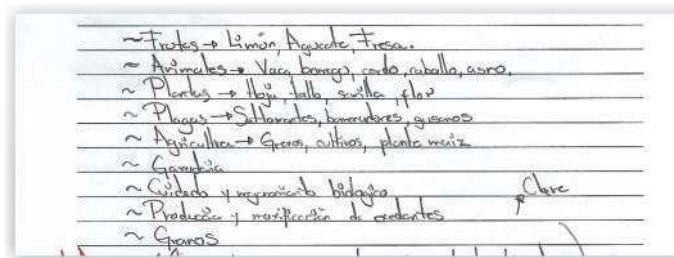 ~ Frutas → Limón, Aguacate, Fresa.
~ Animales → Vaca, borrego, cerdo, caballo, asno.
~ Plantas → Hoja, tallo, semilla, flor
~ Plagas → Saltamontes, barrenadores, gusanos
~ Agricultura → Granos, cultivos, planta maiz
~ Ganadería
~ Cuidado y mejoramiento biológico
Clave
~ Producción y de exedantes
~ Granos